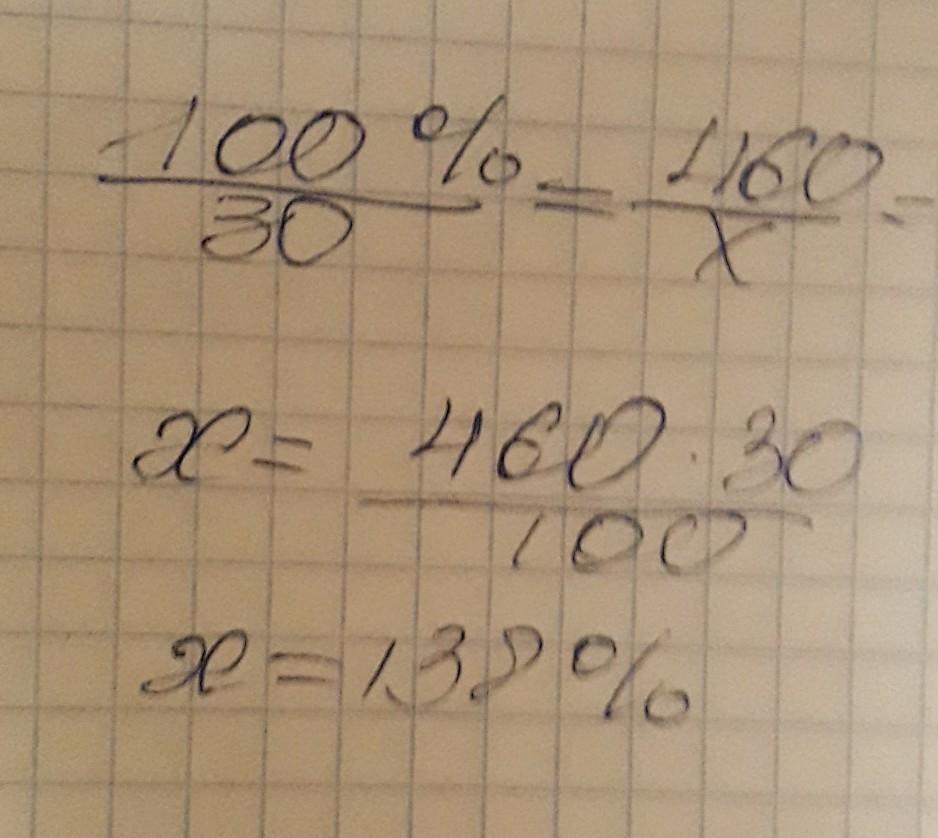 100 % / 30 = 460 / x =
x = 460 · 30 / 100
x = 138 %